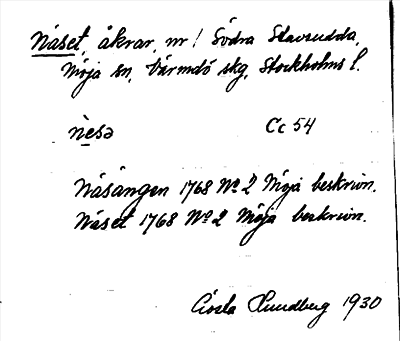 Näset, åkrar, nr 1 Södra Stavsudda,
Möja sn, Värmdö skg, Stockholms l.
nesə Cc 54
Näsängen 1768 No 2 Möja beskrivn.
Näset 1768 No 2 Möja beskrivn.
Gösta Lundberg 1930